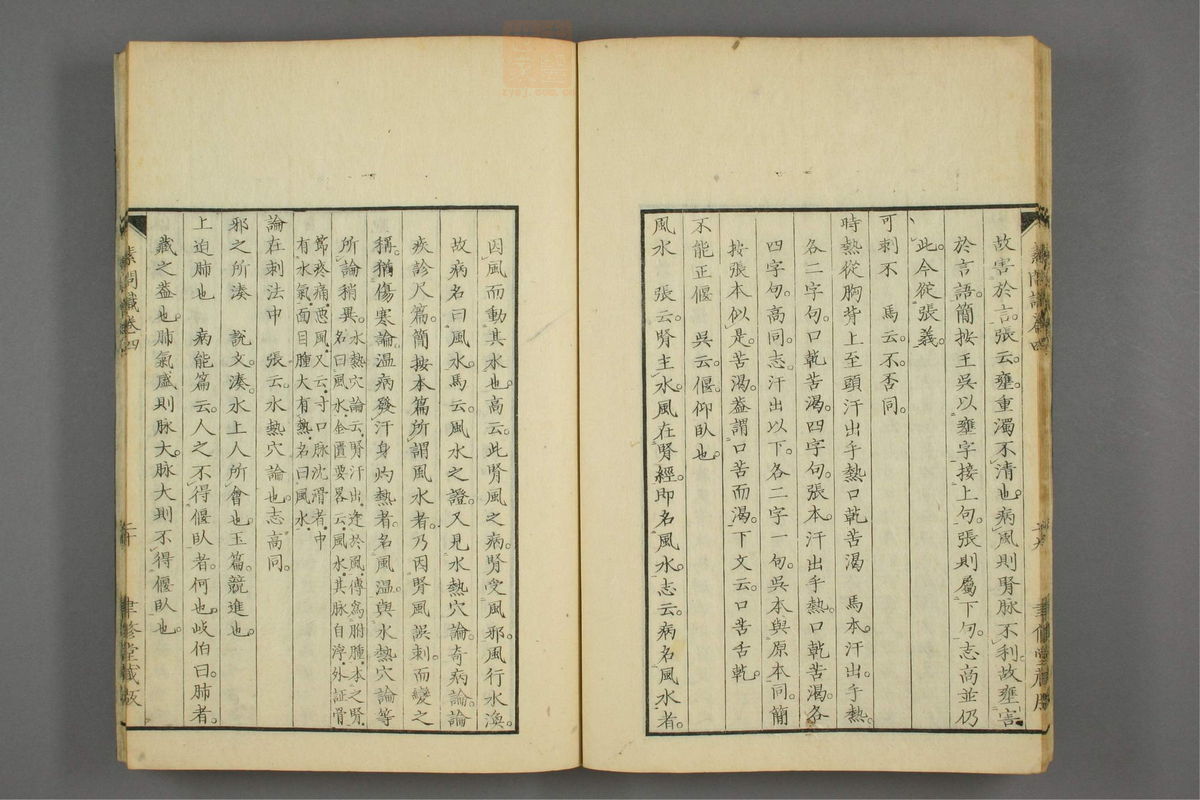 故害於言。張云。壅重濁不清也。病風則腎脉不利。故壅害
於言語。簡按王吳以壅字接上句。張則屬下句。志高並仍
此。今從張義。
可刺不　馬云。不否同。
時熱從胸背上至頭汗出手熱口乾苦渴　馬本。汗出手熱。
各二字句。口乾苦渴。四字句。張本。汗出手熱。口乾苦渴。各
四字句。高同。志汗出以下。各二字一句。吳本與原本同。簡
按張本似是。苦渴。蓋謂口苦而渴。下文云。口苦舌乾
不能正偃　吳云。偃。仰臥也。
風水　張云。腎主水。風在腎經。即名風水。志云。病名風水者。
因風而動其水也。高云。此腎風之病。腎受風邪。風行水渙。
故病名曰風水。馬云。風水之證。又見水熱穴論。奇病論。論
疾診尺篇。簡按本篇所謂風水者。乃因腎風誤刺而變之
稱。猶傷寒論溫病發汗身灼熱者。名風溫。與水熱穴論等
所論稍異。水熱穴論云。腎汗出逢於風。傳為胕腫。本之腎。
名曰風水。金匱要略云。風水。其脉自浮。外証骨
節疼痛。惡風。又云。寸口脉沈滑者。中
有水氣。面目腫大有熱。名曰風水。
論在刺法中　張云。水熱穴論也。志高同。
邪之所湊　說文。湊。水上人所會也。玉篇。競進也。
上迫肺也　病能篇云。人之不得偃臥者。何也。岐伯曰。肺者。
藏之蓋也。肺氣盛則脉大。脉大則不得偃臥也。
素問識卷四
二十
聿修堂藏版